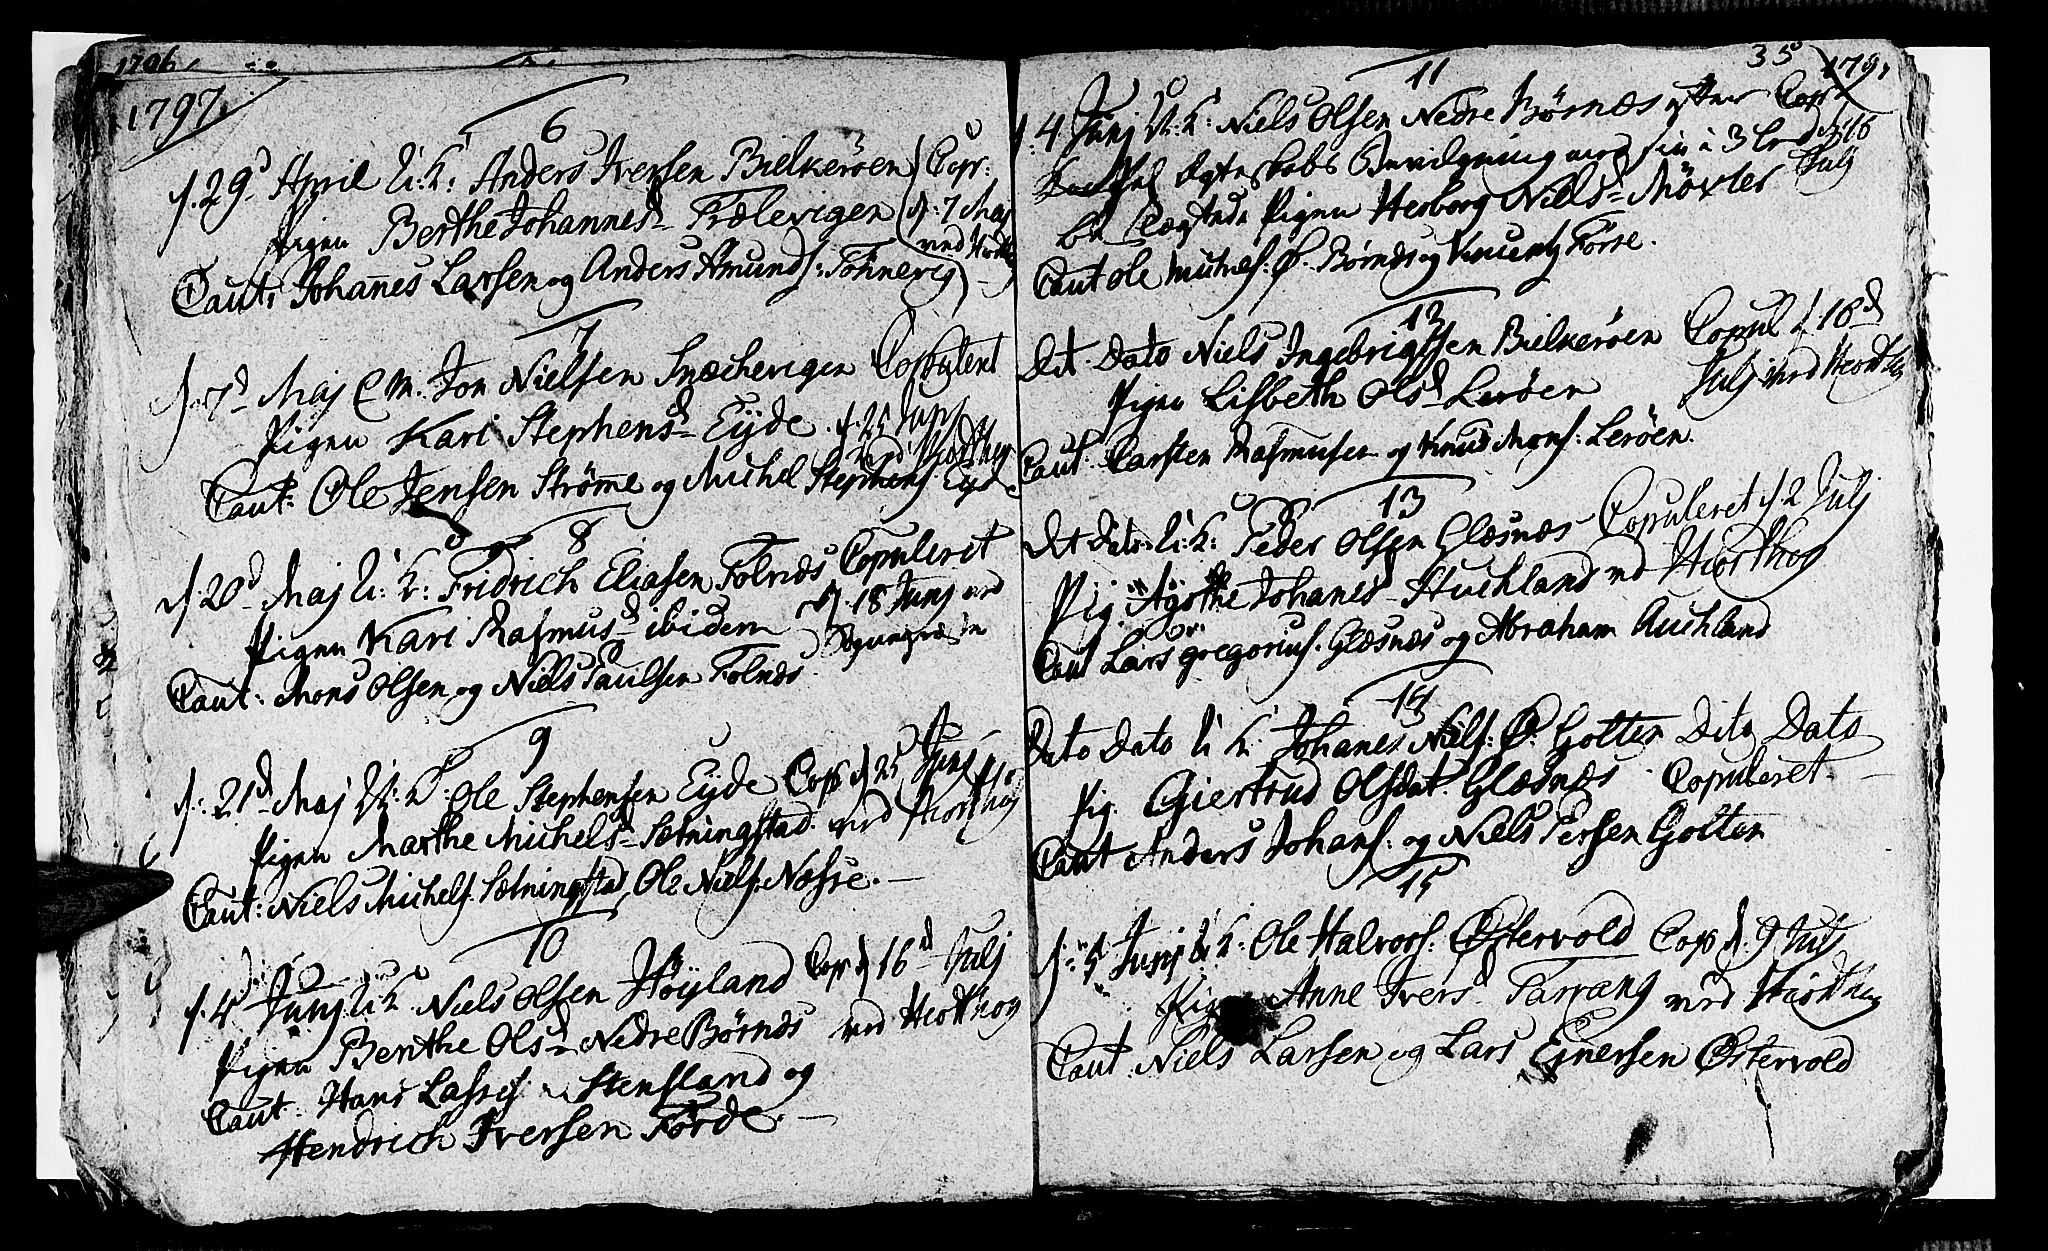 1796
1797.
6
d. 29d April U: K: Anders Iversen Bielkerøen Cop:
Pigen Berthe Johannesd Trælevigen d: 7 Maj
Caut: Johannes Larsen og Anders Amunds: Tofinevig
7
d. 7d Maj E M. Jon Nielsen Snechevigen Copuleret
Pigen Kari Stephensd Eyde d. 25 Junj
Caut: Ole Jensen Strømme og Michel Stephens: Eyde
ved Hiorthoy
8
d. 20d Maj U: K: Fridrich Eliasen Folnæs Copuleret
Pigen Kari Rasmusd ibidem d. 18 Junj ved
Caut: Mons Olsen og Niels Paulsen Folnæs
9
d: 21d Maj U: K: Ole Stephensen Eyde Cop d 25 Junj
Pigen Marthe Michelsd Sætningstad ved Hiorthoy
Caut: Niels Michels. Sætningstad, Ole Niels. Nesse.
10
d. 4d Junj U K Niels Olsen Høyland Cop d 16d Julj
Pigen Berthe Olsd Nedre Børnæs ved Hiorthoy
Caut: Hans Lasses: Stensland og
Hendrich Iversen Førde.
35 1797
11
d. 4 Junj U: K: Niels Olsen Nedre Børnæs efter Cop d 16
Ægteskabs Bevilgning med sin i 3 Led Julj
beslægtede Pigen Herborg Nielsd Møxter
Caut Ole Ø. Børnæs og Vincentz Førre.
12
Dit. Dato Niels Ingebrigtsen Bielkerøen Copul d. 18d
Pigen Lisbeth Olsd Lerøen Julj ved Hiorthoy
Caut. Carsten Rasmusen og Knud Mons: Lerøen.
13
Dit Dato U: K: Peder Olsen Glæsnæs Copuleret d. 2 Julj
Pig. Agothe Johanesd Huchland ved Hiorthoy
Caut Lars Gregorius. Glæsnæs og Abraham Auchland
14
Dato Dato U K: Johanes Niels: Ø. Golten Dito Dato
Pig. Giertrud Olsdat. Glæsnæs Copuleret
Caut Anders Johans: og Niels Persen Golten
15
d: 5 Junj U K: Ole Halvors: Østervold Cop d: 9 Julj
Pigen Anne Iversd Tarrang ved Hiorthoy
Caut: Niels Larsen og Lars Ejnersen Østervold